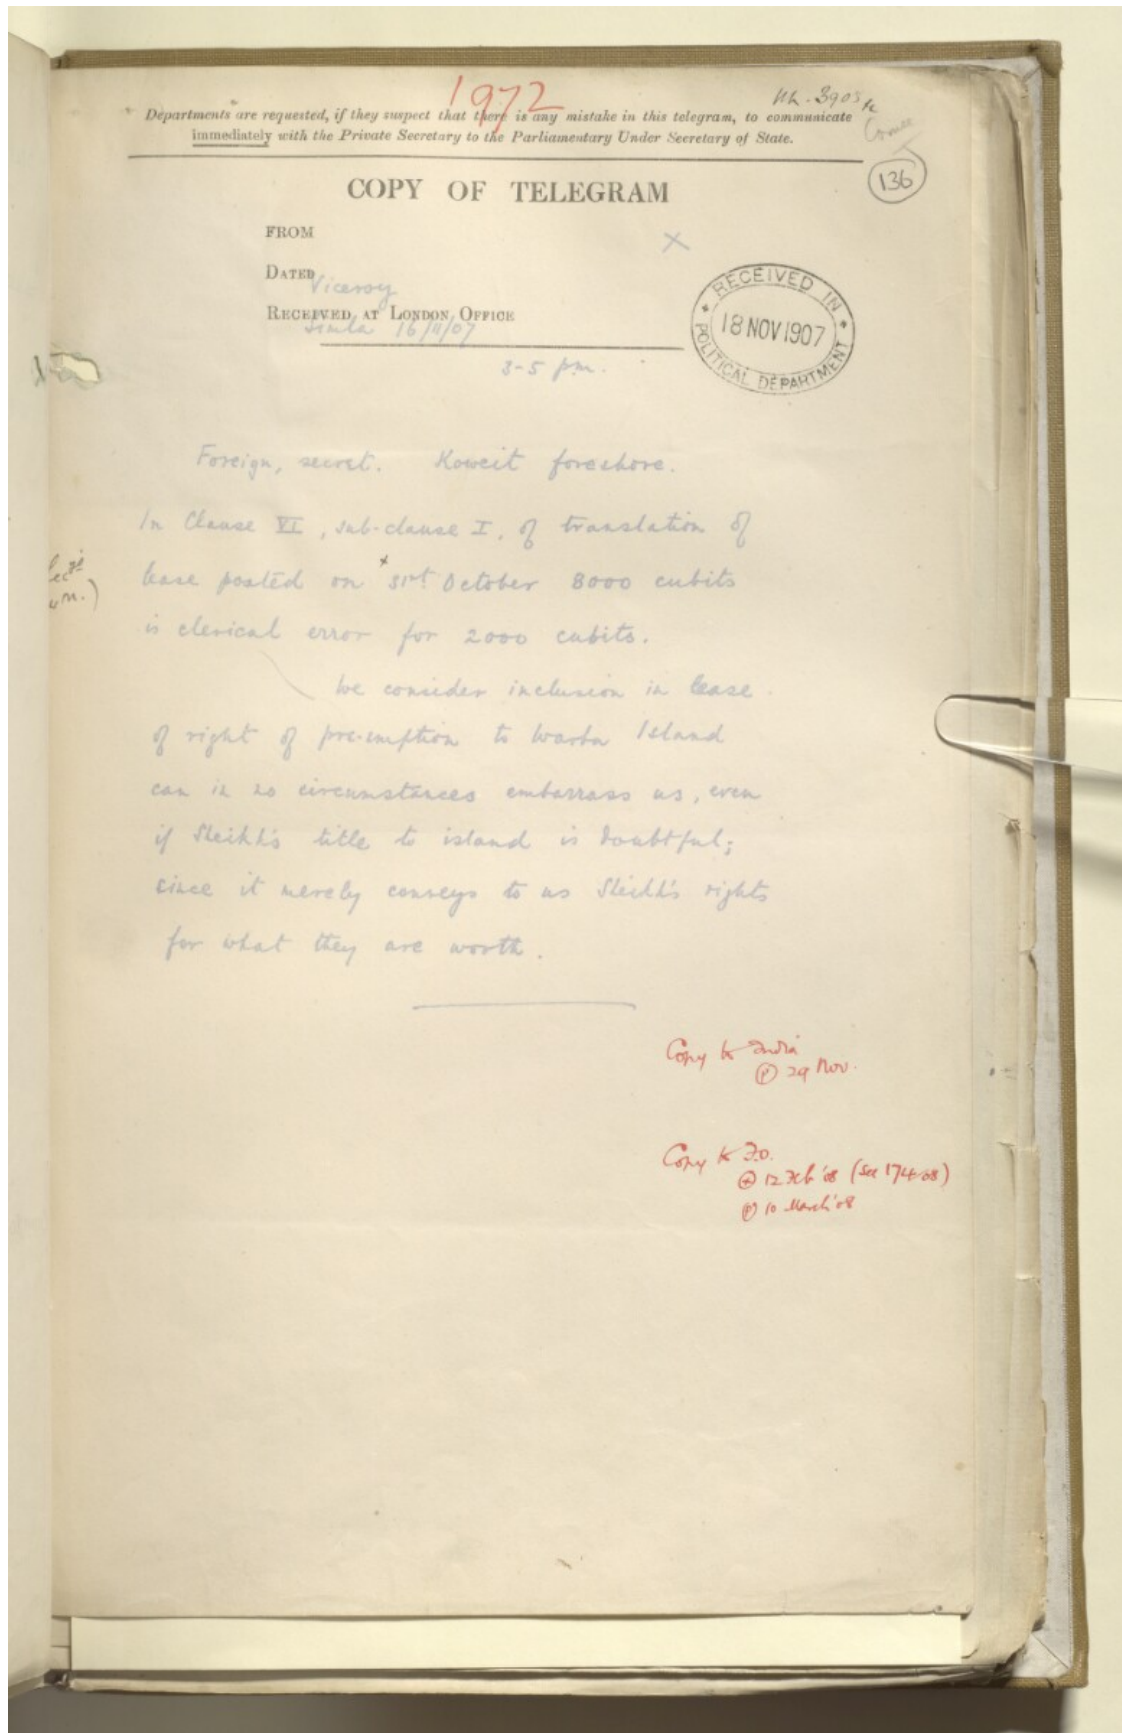 1972
Departments are requested, if they suspect that there is any mistake in this telegram, to communicate
immediately with the Private Secretary to the Parliamentary Under Secretary of State.
136
COPY OF TELEGRAM
FROM
DATED
Viceroy
RECEIVED AT LONDON OFFICE
Simla 16/11/07
3-5 pm.
RECEIVED IN
18 NOV 1907
POLITICAL DEPARTMENT
Foreign, secret. Koweit foreshore.
In Clause VI, sub-clause I, of translation of
lease posted on 31st October 8000 cubits
is clerical error for 2000 cubits.
We consider inclusion in lease
of right of pre-emption to Warba Island
can in no circumstances embarrass us, even
if Sheikh's title to island is doubtful;
since it merely conveys to us Sheikh's rights
for what they are worth.
Copy to India
29 Nov.
Copy to F.O.
12 Feb '08 (See 174-08)
10 March '08